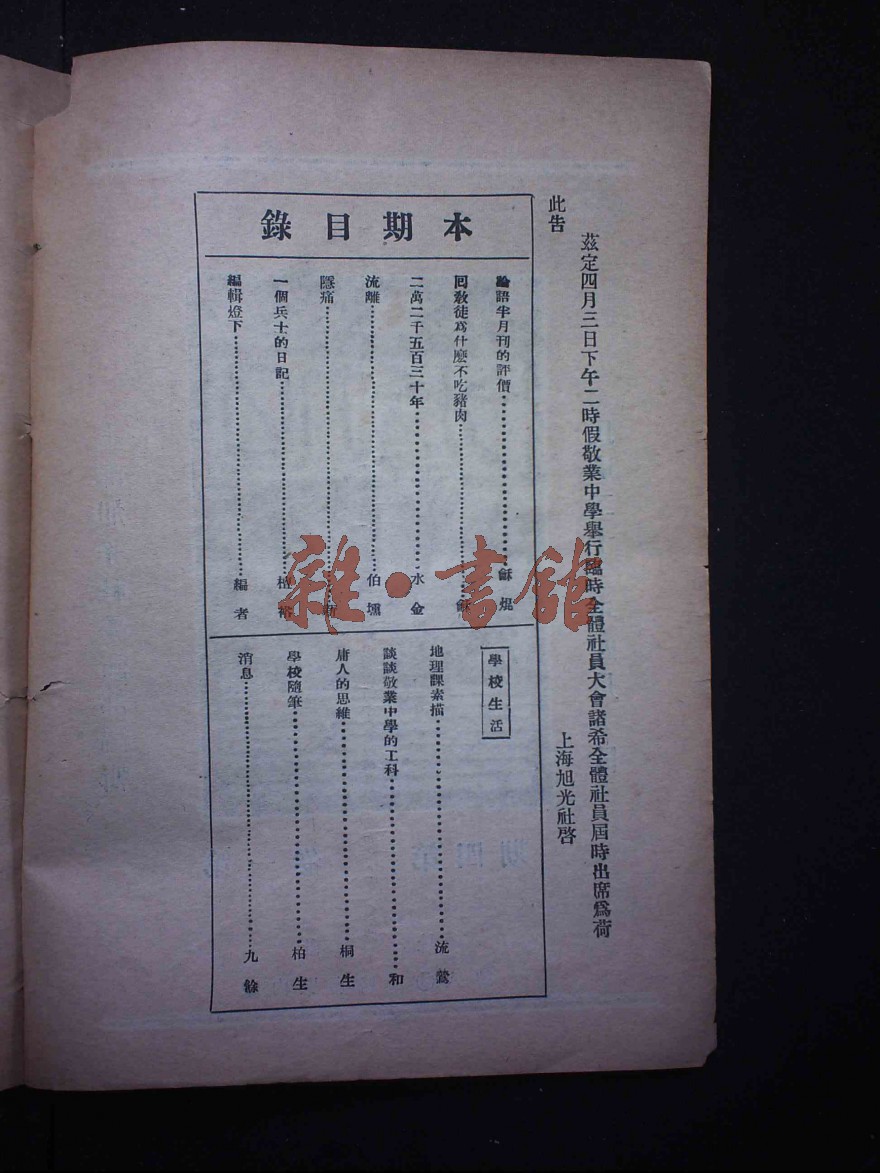 茲定四月三日下午二時假敬業中學舉行臨時全體社員大會諸希全體社員屆時出席爲荷
此告
上海旭光社啓
本期目錄
論語半月刊的評價 穌焜
回敎徒爲什麽不吃豬肉 穌
二萬二千五百三十年 水金
流離 伯壎
隱痛
一個兵士的日記 裕
編輯燈下 編者
學校生活
地理課素描 流鶯
談談敬業中學的工科 和
庸人的思維 桐生
學校隨筆 柏生
消息 九餘
雜·書館